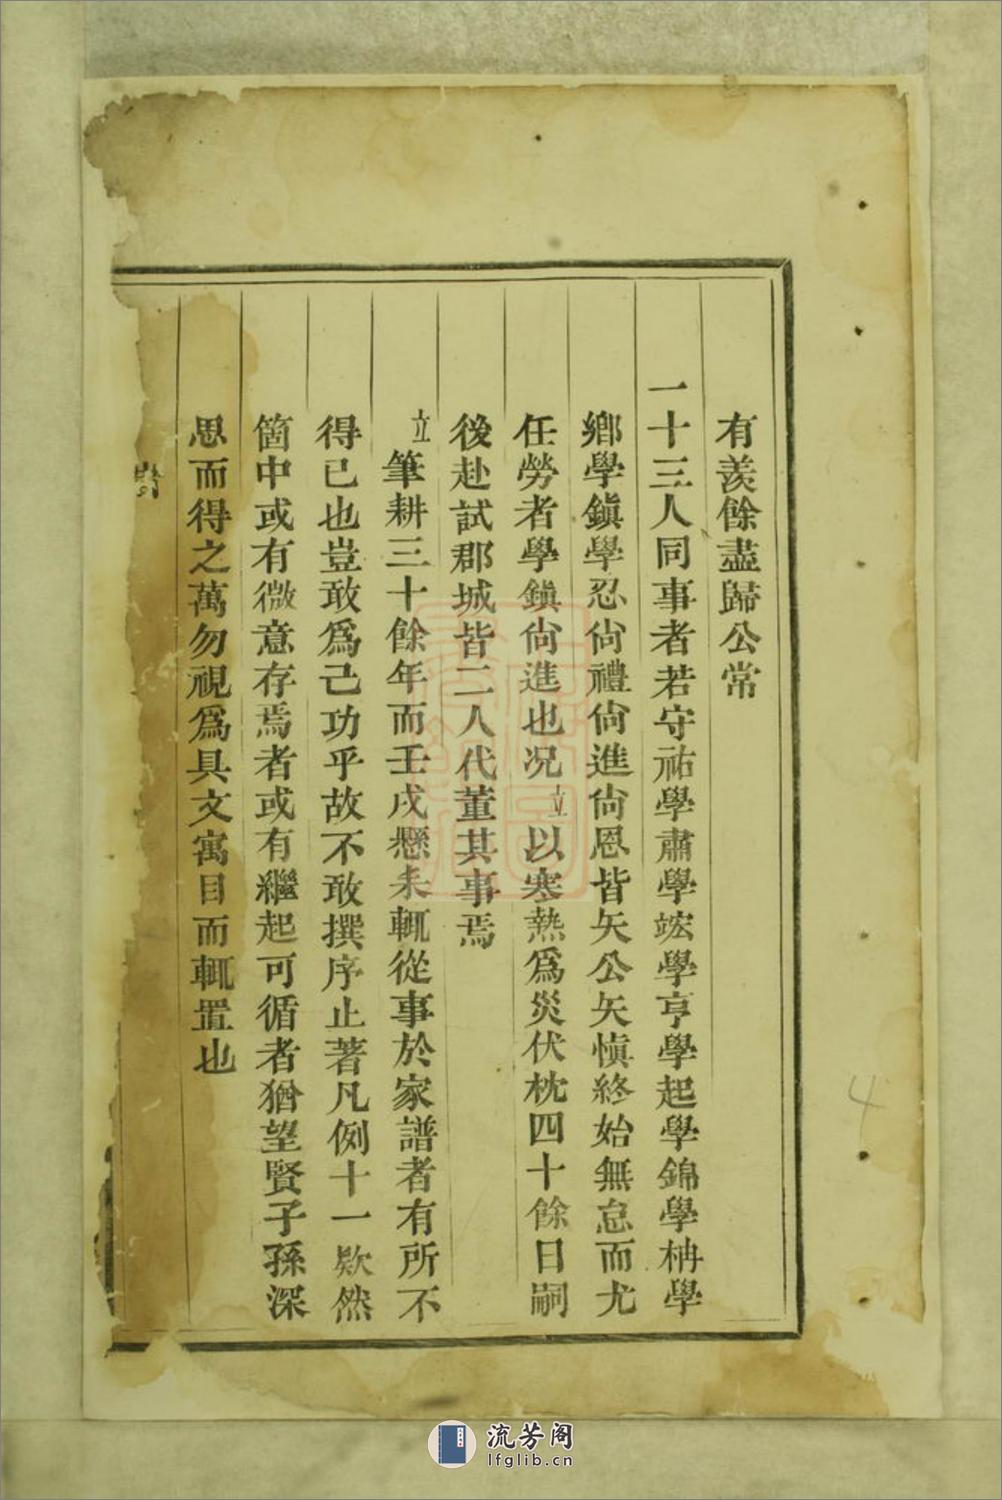 有羨餘盡歸公常
一十三人同事者若守祐學肅學竤學亨學起學錦學柟學
鄉學鎭學忍尙禮尙進尙恩皆矢公矢愼終始無怠而尤
任勞者學鎭尙進也况立以寒熱爲災伏枕四十餘日嗣
後赴試郡城皆二人代董其事焉
立筆耕三十餘年而壬戌懸耒輒從事於家譜者有所不
得已也豈敢爲己功乎故不敢撰序止著凡例十一欵然
箇中或有微意存焉者或有繼起可循者猶望賢子孫深
思而得之萬勿視爲具文寓目而輒置也
4
流芳阁
lfglib.cn